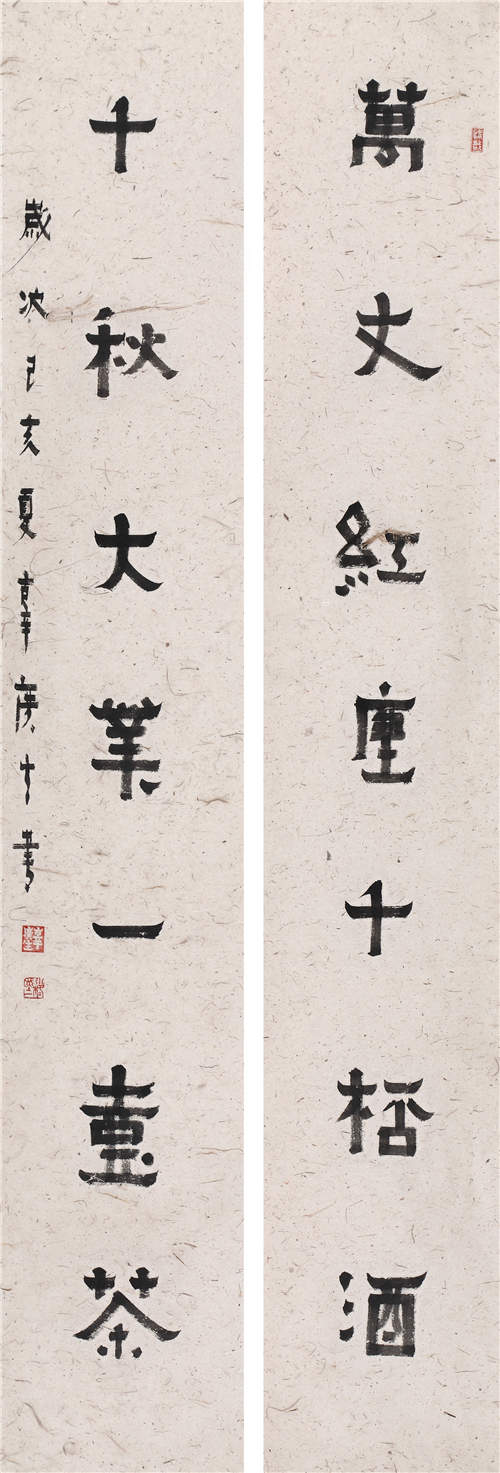 萬丈紅塵千桮酒
千秋大業一壺茶
歲次己亥夏辜書